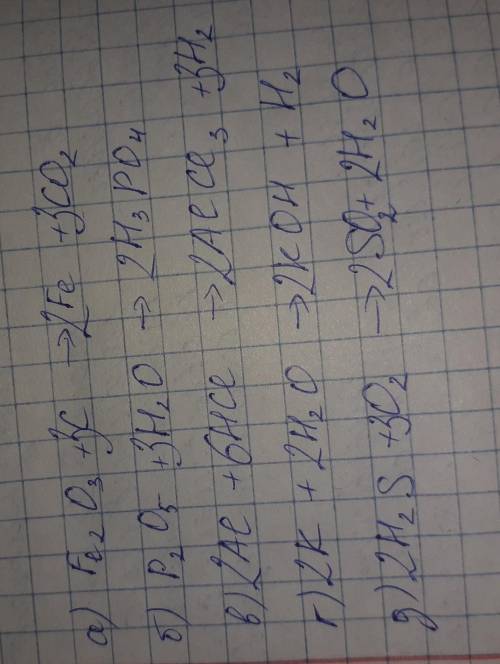 а) Fe₂O₃ +3C → 2Fe +3CO₂
б) P₂O₅ +3H₂O → 2H₃PO₄
в) 2Al +6HCl → 2AlCl₃ +3H₂
г) 2K + 2H₂O → 2KOH + H₂
д) 2H₂S +3O₂ → 2SO₂ + 2H₂O